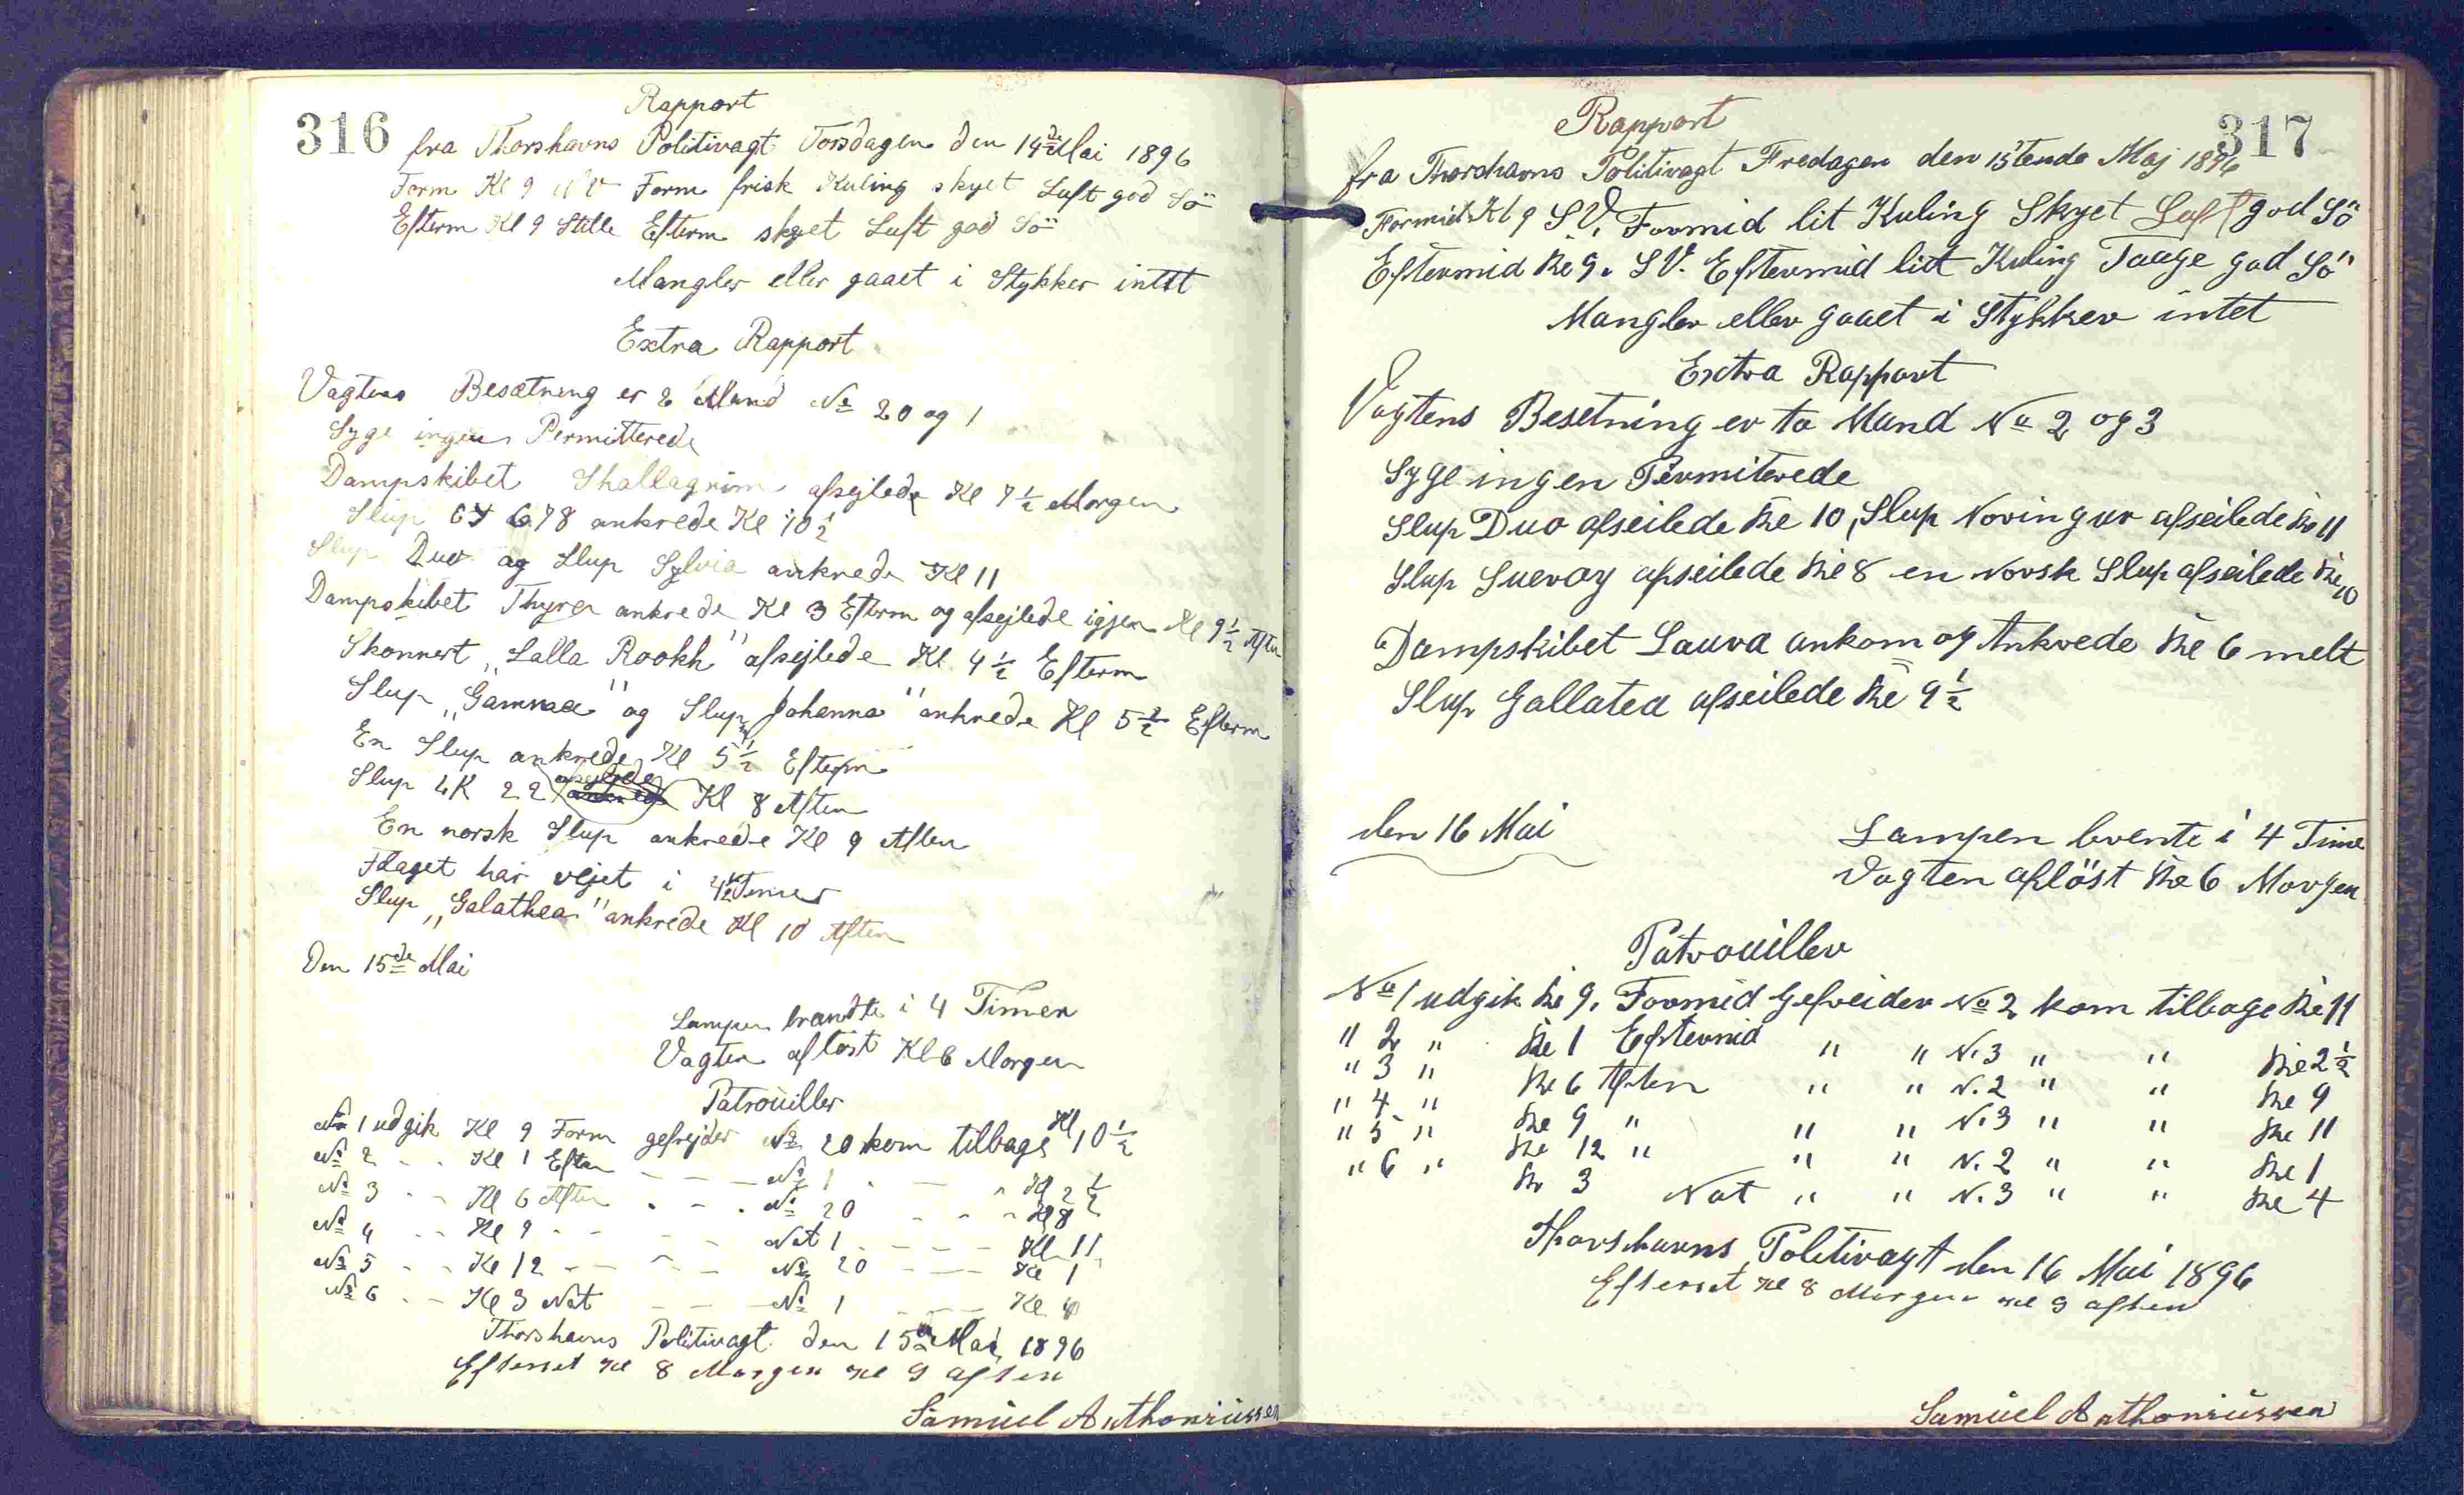 316
Rapport
fra Thorshavns Politivagt Torsdagen den 14de Mai 1896
Form Kl 9 NV Form frisk Kuling skyet Luft god Sö
Efterm Kl 9 Stille Efterm skyet Luft god Sö
Mangler eller gaaet i Stykker intet
Extra Rapport
Vagtens Besætning er 2 Mand No 20 og 1
Syge ingen Permitterede
Dampskibet Skallagrim afsejlede Kl 7½ Morgen
Slup 678 ankrede Kl 10½
Slup Duo og Slup Sylvia ankrede Kl 11
Dampskibet Thyra ankrede Kl 3 Efterm og afsejlede igjen Kl 9½ Aften
Skonnert „Lalla Rookh" afsejlede Kl 4½ Efterm
Slup „Gamma" og Slup „Johanna" ankrede Kl 5½ Efterm
En Slup ankrede Kl 5½ Efterm
Slup LK 22 afsejlede Kl 8 Aften
En norsk Slup ankrede Kl 9 Aften
Flaget har vejet i 4½ Timer
Slup „Galathea" ankrede Kl 10 Aften
Den 15de Mai
Lampen brandte i 4 Timer
Vagten afløst Kl 6 Morgen
Patrouiller
No 1 udgik Kl 9 Form gefrejder No 20 kom tilbage Kl 10½
No 2 - - Kl 1 Efter - - - No 1 - - - Kl 2½
No 3 - - Kl 6 Aften - - - No 20 - - - Kl 8
No 4 - - Kl 9 - - - - Nat 1 - - - - Kl 11
No 5 - - Kl 12 - - - - No 20 - - - Kl 1
No 6 - - Kl 3 Nat - - - No 1 - - - Kl 4
Thorshavns Politivagt den 15de Mai 1896
Efterset Kl 8 Morgen Kl 9 aften
Samuel Anthoniussen
317
Rapport
fra Thorshavns Politivagt Fredagen den 15tende Maj 1896
Formid Kl 9 SV. Formid lit Kuling Skyet Luft god Sö
Eftermid Kl 9. SV. Eftermid lidt Kuling Taage god Sö
Mangler eller gaaet i Stykker intet
Extra Rapport
Vagtens Besetning er to Mand No 2 og 3
Syge ingen Permiterede
Slup Duo afseilede Kl 10, Slup Noringur afseilede Kl 11
Slup Sueroy afseilede Kl 8 en Norsk Slup afseilede Kl 10
Dampskibet Laura ankom og Ankrede Kl 6 melt
Slup Gallatea afseilede Kl 9½
den 16 Mai
Lampen brente i 4 Time
Vagten aflöst Kl 6 Morgen
Patrouiller
No 1 udgik Kl 9. Formid Gefreider No 2 kom tilbage Kl 11
" 2 " Kl 1 Eftermid " " N. 3 " " Kl 2½
" 3 " Kl 6 Aften " " N. 2 " " Kl 9
" 4 " Kl 9 " " " N. 3 " " Kl 11
" 5 " Kl 12 " " " N. 2 " " Kl 1
" 6 " Kl 3 Nat " " N. 3 " " Kl 4
Thorshavns Politivagt den 16 Mai 1896
Efterset Kl 8 Morgen Kl 9 aften
Samuel Anthoniussen